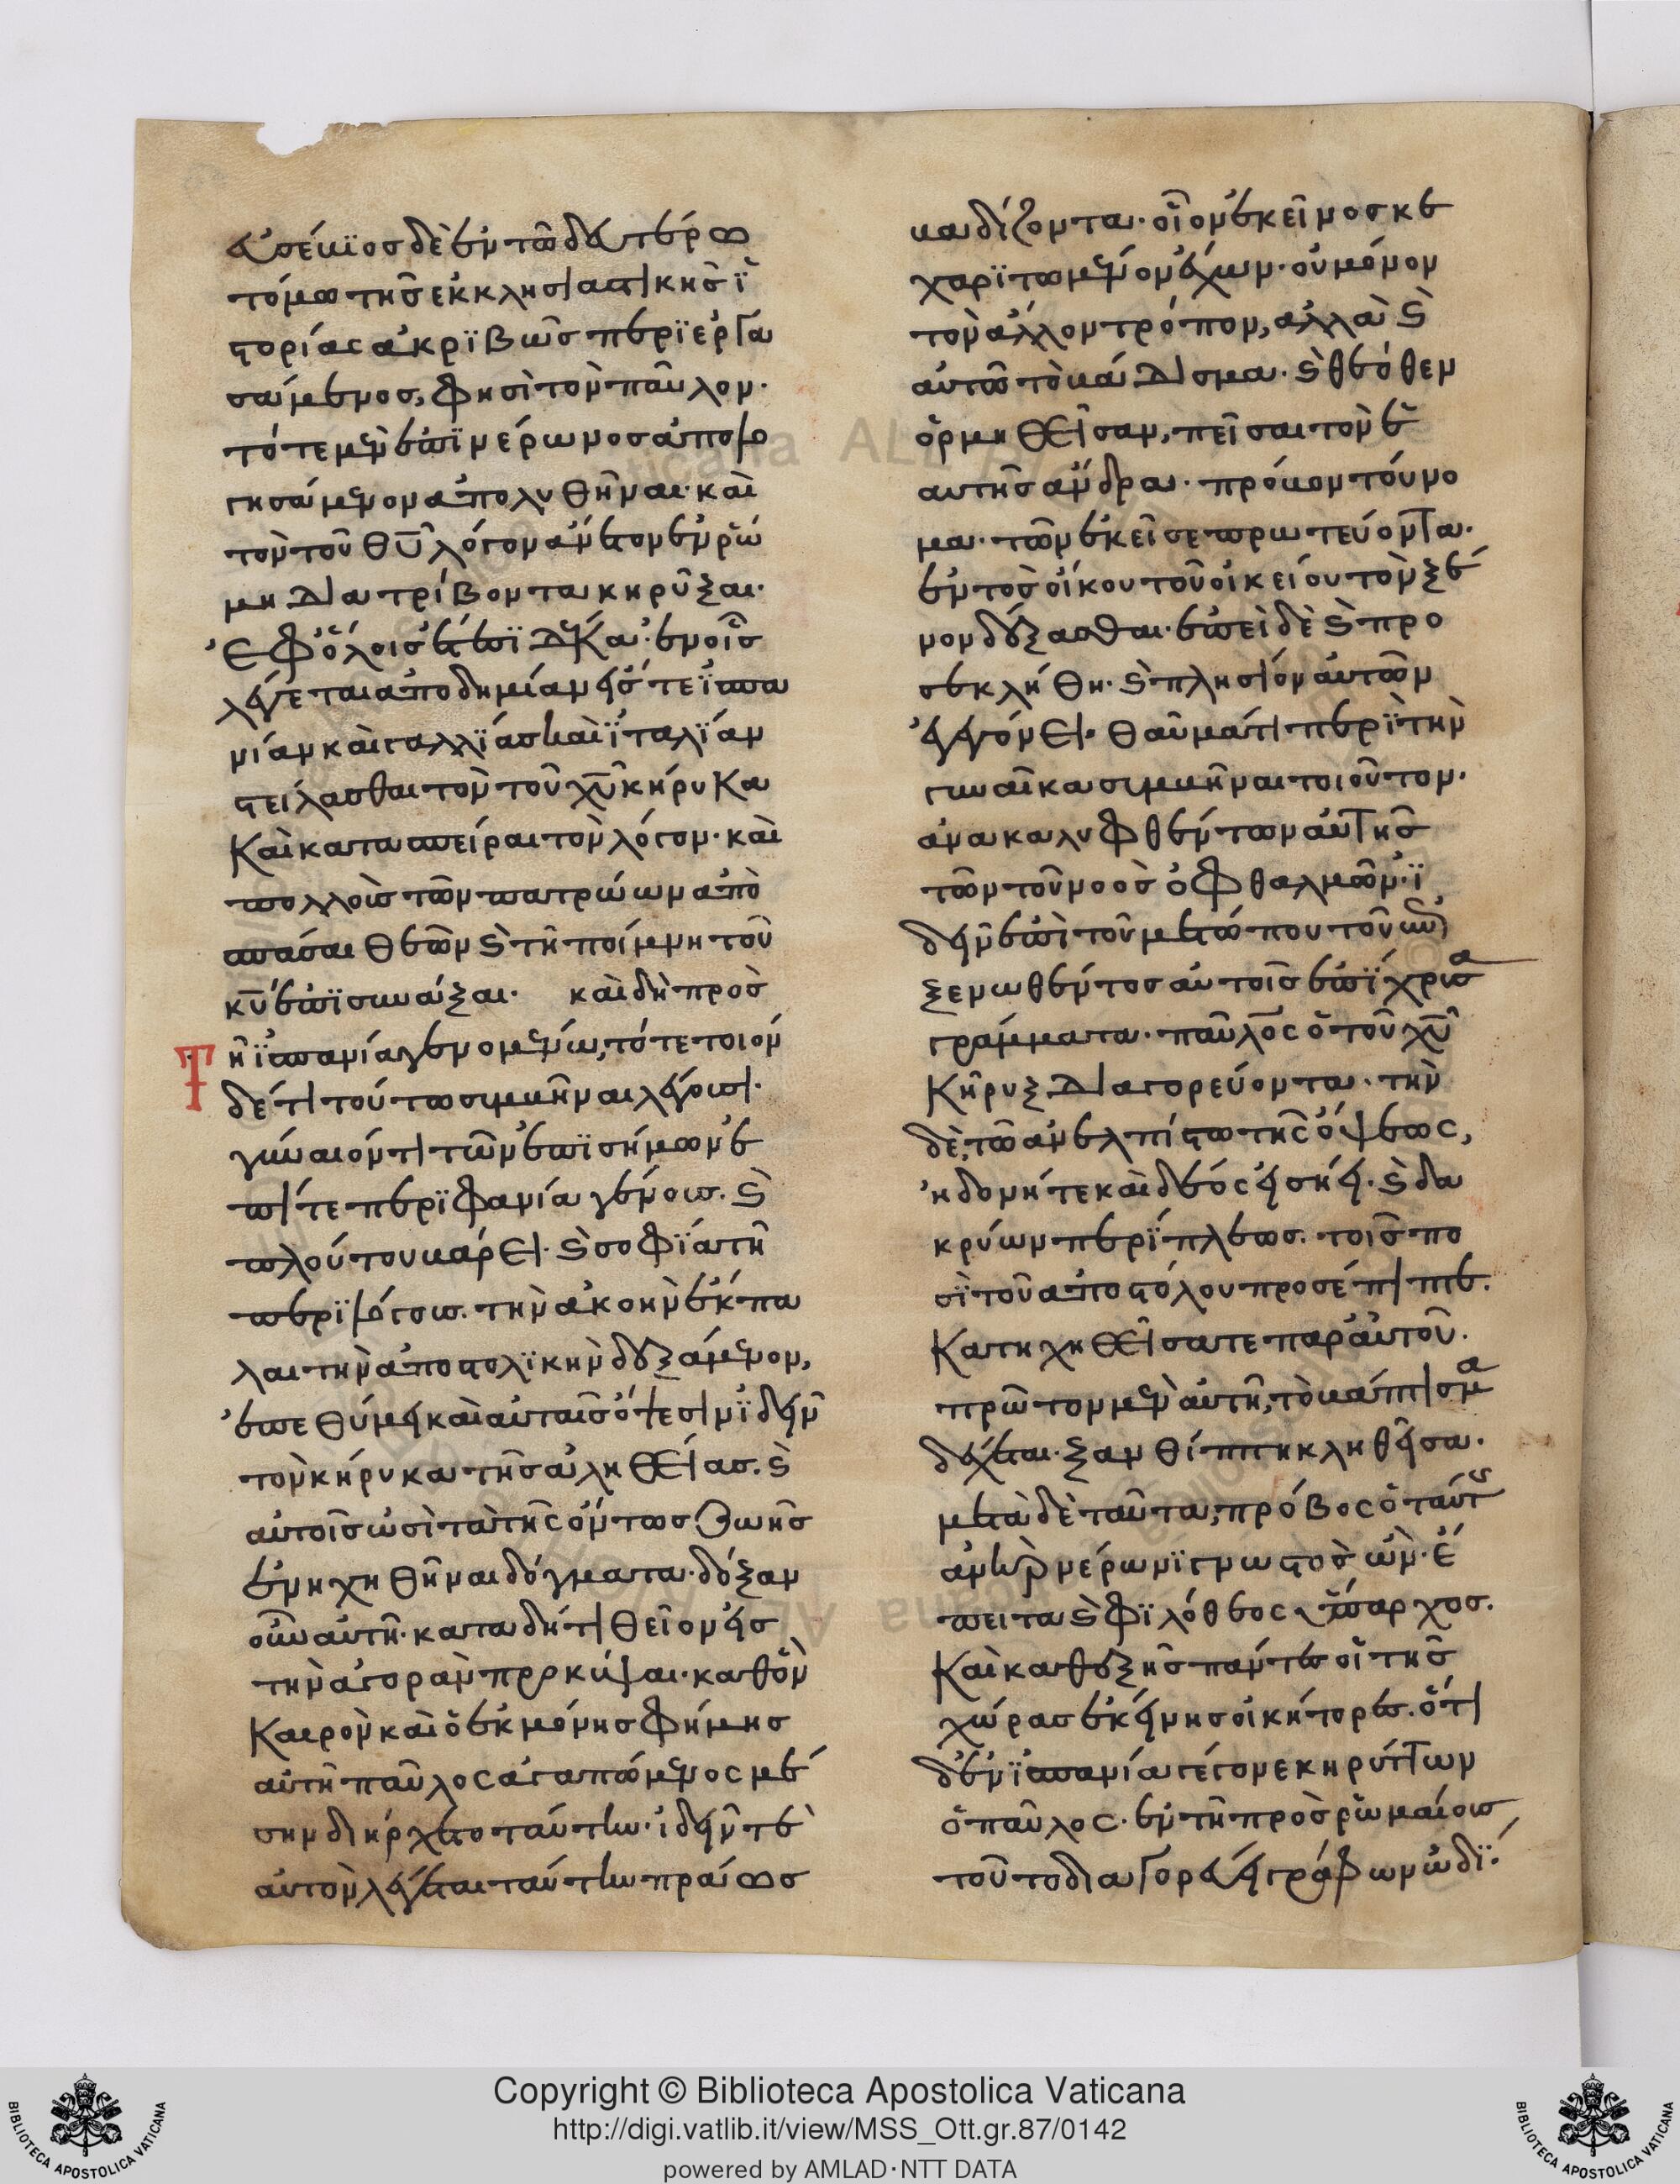 εὐσέβϊος δὲ ἐν τῶ δευτέρω
τόμω τῆς ἐκκλησιαστικῆς ἱ
στορίας ἀκρϊβῶς περϊεργα
σάμενος, φησὶ τὸν παῦλον·
τότε μὲν ἐπϊ νέρωνος ἀπολο
γησάμενον ἀπολυθῆναι· καὶ
τὸν τοῦ θυ λόγον ἄνετον ἐν ῥώ
μη διατρίβοντα κηρῦξαι·
Ἐφ' ὅλοις ἔτεσϊ δέκα· ἐν οἷς
λέγεται ἀποδημίαν εἴς τε ἱσπα
νίαν καὶ γαλλϊάς καὶ ϊταλϊάν
στείλασθαι τὸν τοῦ χυ κήρυκα
Καὶ κατασπείραι τὸν λόγον· καὶ
πολλοὺς τῶν πατρώων ἀπο
σπάσαι θεῶν καὶ τῆ ποίμνη τοῦ
κυ ἐπϊσυνάξαι· καὶ δὴ πρὸς
Τῆ ϊσπανία γενομένω, τότε τοιόν
δέ τι τούτω συμβῆναι λέγουσι·
γύναιόν τι τῶν ἐπϊσήμων ἐ
πί τε περϊφανία γένους· καὶ
πλούτου βάρει· καὶ σοφϊά τῆ
περϊ λόγους· τὴν ἀκοὴν ἐκ πα
λαι τὴν ἀποστολϊκὴν δεξάμενον,
ἐπεθύμει καὶ αὐταῖς ὄψεσιν ϊδεῖν
τὸν κήρυκα τῆς ἀληθείας· καὶ
αὐτοῖς ὠσὶ τὰ τῆς ὄντως ζωῆς
ἐνηχηθῆναι δόγματα· δόξαν
οὖν αὐτῆ· κατὰ δή τι θεῖον εἰς
τὴν ἀγορὰν προκύψαι· καθ' ὃν
Καιρὸν καὶ ὁ ἐκ μόνης φήμης
αὐτῆ παῦλος ἀγαπώμενος μέ
σην διήρχετο ταύτην· ἰδεῖν τὲ
αὐτὸν λέγεται ταύτην πράως
βαδίζοντα· οἷον ἐκεῖνος κε
χαρϊτωμένον ἔχων· οὐ μόνον
τὸν ἄλλον τρόπον, ἀλλὰ καὶ
αὐτῶ τὸ βάδισμα· καὶ θεόθεν
ὁρμηθεῖσαν, πεῖσαι τὸν ἑ
αυτῆς ἄνδρα· πρόβον τούνο
μα· τῶν ἐκεῖσε πρωτεύοντα·
ἐντὸς οἴκου τοῦ οἰκείου τὸν ξέ
νον δέξασθαι· ἐπεὶ δὲ καὶ προ
σεκλήθη· καὶ πλησίον αὐτῶν
ἐγεγόνει· θαῦμά τι περϊ τὴν
γυναῖκα συμβῆναι τοιοῦτον·
ἀνακαλυφθέντων αὐτῆς
τῶν τοῦ νοὸς ὀφθαλμῶν· ϊ
δεῖν ἐπὶ τοῦ μετώπου τοῦ
ξενωθέντος αὐτοῖς ἐπϊ χρυσᾶ
γράμματα· παῦλος ὁ τοῦ χυ
Κῆρυξ διαγορεύοντα· τὴν
δὲ, τῶ ἀνελπίστω τῆς ὄψεως,
ἡδονή τε καὶ δέος εἰσήει· καὶ δα
κρύων περϊπλεως· τοῖς πο
σϊ τοῦ ἀποστόλου προσέπιπτε·
Κατηχηθεῖσά τε παρ' αὐτοῦ·
πρῶτον μὲν αὐτὴ, τὸ βάπτισμα
δέχεται· ξανθίππη κληθεῖσα·
μετὰ δὲ ταῦτα, πρόβος ὁ ταύτης
ἀνὴρ νέρωνϊ γνωστὸς ὤν· ἔ
πειτα καὶ φϊλόθεος ὕπαρχος·
Καὶ καθεξῆς πάντες οἱ τῆς
χώρας ἐκείνης οἰκήτορες· ὅτι
δ' ἐν ϊσπανία γέγονε κηρύττων
ὁ παῦλος· ἐν τῆ πρὸς ῥωμαίους
τοῦτο διαγορεύει γράφων ὡδΐ·
Copyright © Biblioteca Apostolica Vaticana
http://digi.vatlib.it/view/MSS_Ott.gr.87/0142
powered by AMLAD·NTT DATA
BIBLIOTECA APOSTOLICA VATICANA
BIBLIOTECA APOSTOLICA VATICANA